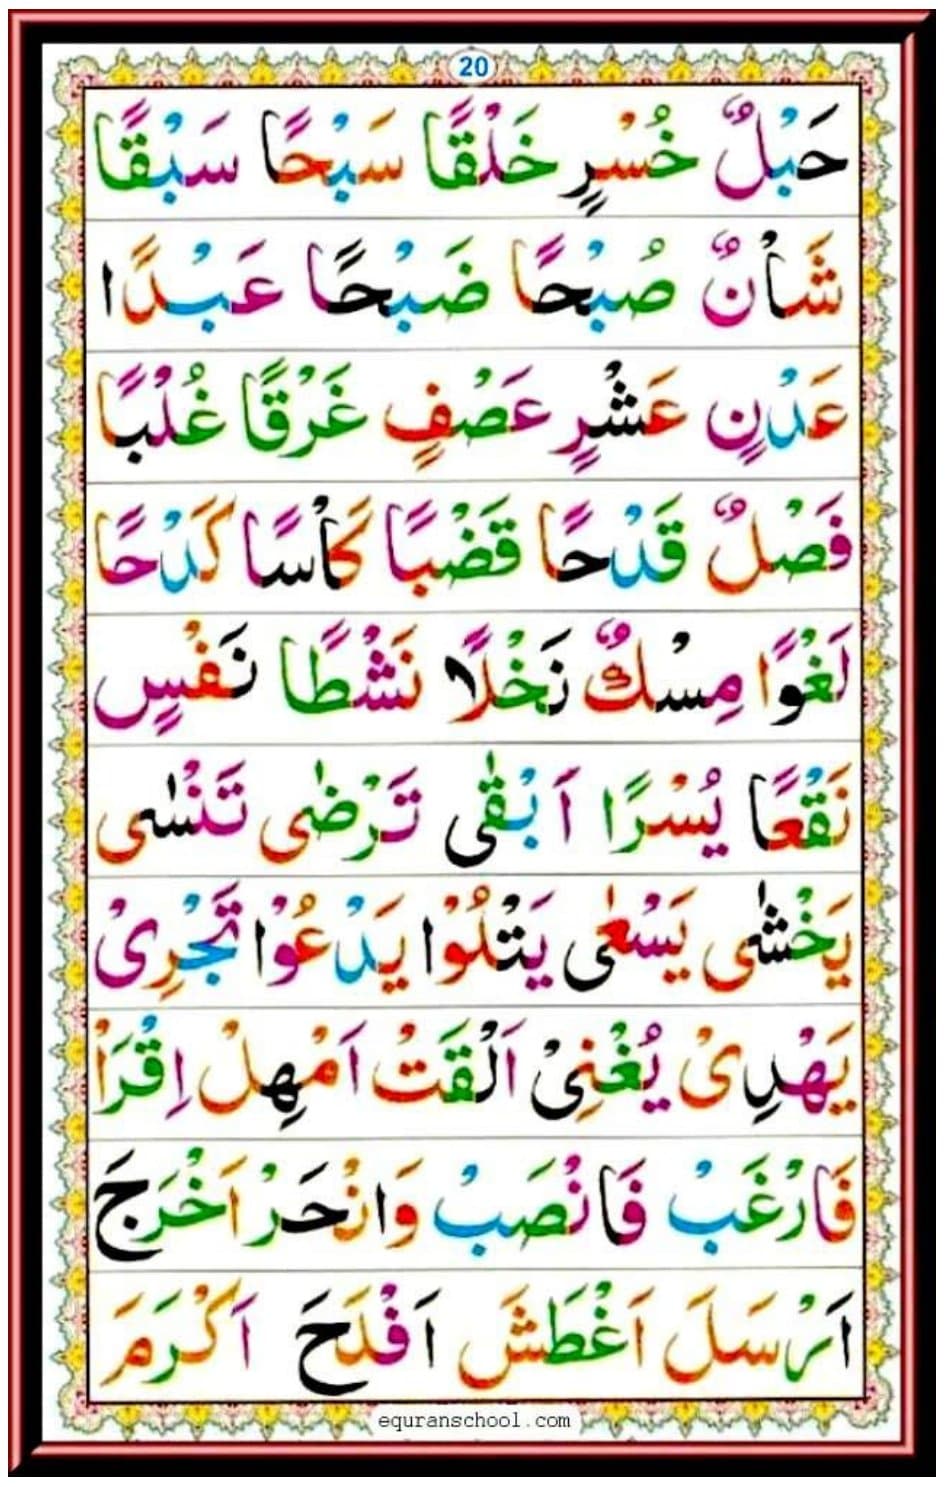 20
حَبْلٌ خُسْرٍ خَلْقًا سَبْحًا سَبْقًا
شَأْنٌ صُبْحًا ضَبْحًا عَبْدًا
عَدْنٍ عَشْرٍ عَصْفٍ غَرْقًا غُلْبًا
فَصْلٌ قَدْحًا قَضْبًا كَأْسًا كَدْحًا
لَغْوًا مِسْكٌ نَخْلًا نَشْطًا نَفْسٍ
نَقْعًا يُسْرًا اَبْقٰى تَرْضٰى تَنْسٰى
يَخْشٰى يَسْعٰى يَتْلُوْا يَدْعُوْا تَجْرِىْ
يَهْدِىْ يُغْنِىْ اَلْقَتْ اَمْهِلْ اِقْرَاْ
فَارْغَبْ فَانْصَبْ وَانْحَرْ اَخْرَجَ
اَرْسَلَ اَغْطَشَ اَفْلَحَ اَكْرَمَ
equranschool.com